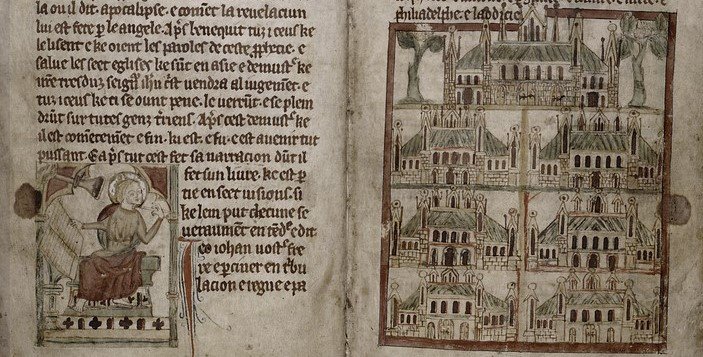 la ou il dit. apocalipse. e coment la reuelaciun
lui est fete ꝑ le angele. Apͥs benequit tuz iceus ke
le lisent e ke oient les paroles de ceste ꝓfecie. e
salue les seet eglises ke sūt en asie e demustᵉ ke
nr̄e tresduz seignᷣ ihū cͥst uendra al iugement. e
tuz iceus ke ti se ount pene. le uerrūt. e se plein
drūt sur tutes genz tͥriens. Apͥs cest demustᵉ ke
il est comēcement e fin. ki est. e fu. e est auenir tut
puissant. E apͥs tut cest fet sa narraciun dūt il
fet sun liure. ke est ꝑ
tie en seet uisions. si
ke lem put checune se
ueraument entēdᵉ. e dit
Jeo iohan uostᵉ frere
e parciuer en tͥbu
lacion e regne e pa
philadelphe. e laodicie